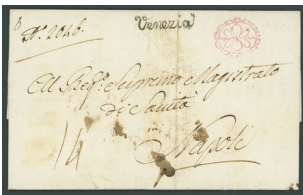 N. 2046.
Venezia
Al Reg. Supremo Magistrato
di Sanità
in
Napoli
14